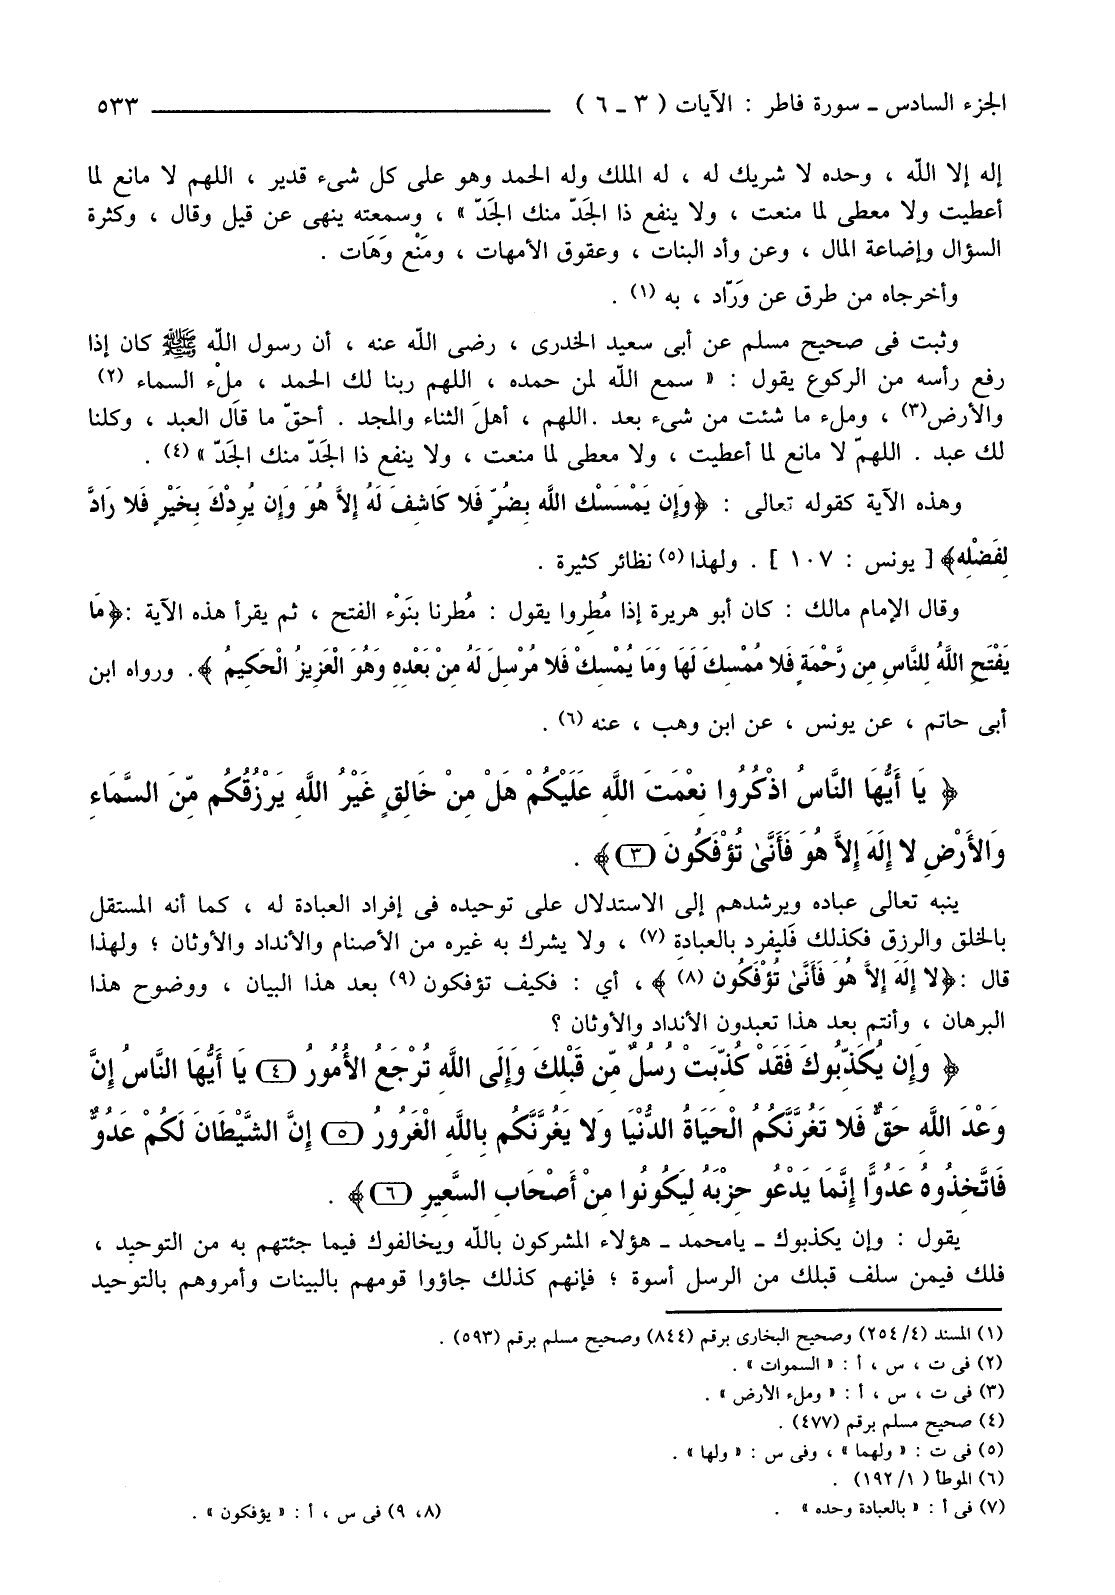 الجزء السادس ـ سورة فاطر : الآيات ( ٣ ـ ٦ ) ٥٣٣
إله إلا اللّه ، وحده لا شريك له ، له الملك وله الحمد وهو على كل شىء قدير ، اللهم لا مانع لما
أعطيت ولا معطى لما منعت ، ولا ينفع ذا الجَدّ منك الجَدّ » ، وسمعته ينهى عن قيل وقال ، وكثرة
السؤال وإضاعة المال ، وعن وأد البنات ، وعقوق الأمهات ، ومَنْع وَهَات .
وأخرجاه من طرق عن وَرّاد ، به (١) .
وثبت فى صحيح مسلم عن أبى سعيد الخدرى ، رضى اللّه عنه ، أن رسول اللّه ﷺ كان إذا
رفع رأسه من الركوع يقول : « سمع اللّه لمن حمده ، اللهم ربنا لك الحمد ، ملْء السماء (٢)
والأرض(٣) ، وملء ما شئت من شىء بعد .اللهم ، أهلَ الثناء والمجد . أحقّ ما قال العبد ، وكلنا
لك عبد . اللهمّ لا مانع لما أعطيت ، ولا معطى لما منعت ، ولا ينفع ذا الجَدّ منك الجَدّ » (٤) .
وهذه الآية كقوله تعالى : ﴿وَإِن يَمْسَسْكَ اللَّه بِضُرّ فَلا كَاشِفَ لَهُ إِلاَّ هُوَ وَإِن يُرِدْكَ بِخَيْرٍ فَلا رَادَّ
لِفَضْلِه﴾ [ يونس : ١٠٧ ] . ولهذا (٥) نظائر كثيرة .
وقال الإمام مالك : كان أبو هريرة إذا مُطِروا يقول : مُطرنا بنَوْء الفتح ، ثم يقرأ هذه الآية :﴿مَا
يَفْتَحِ اللَّهُ لِلنَّاسِ مِن رَّحْمَةٍ فَلا مُمْسِكَ لَهَا وَمَا يُمْسِكْ فَلا مُرْسِلَ لَهُ مِنْ بَعْدِهِ وَهُوَ الْعَزِيزُ الْحَكِيمُ ﴾. ورواه ابن
أبى حاتم ، عن يونس ، عن ابن وهب ، عنه (٦) .
﴿ يَا أَيُّهَا النَّاسُ اذْكُرُوا نِعْمَتَ اللَّهِ عَلَيْكُمْ هَلْ مِنْ خَالِقٍ غَيْرُ اللَّهِ يَرْزُقُكُم مِّنَ السَّمَاءِ
وَالأَرْضِ لا إِلَهَ إِلاَّ هُوَ فَأَنَّىٰ تُؤْفَكُونَ (٣)﴾ .
ينبه تعالى عباده ويرشدهم إلى الاستدلال على توحيده فى إفراد العبادة له ، كما أنه المستقل
بالخلق والرزق فكذلك فَليفرد بالعبادة (٧) ، ولا يشرك به غيره من الأصنام والأنداد والأوثان ؛ ولهذا
قال :﴿لا إِلَهَ إِلاَّ هُوَ فَأَنَّىٰ تُؤْفَكُون (٨) ﴾ ، أي : فكيف تؤفكون (٩) بعد هذا البيان ، ووضوح هذا
البرهان ، وأنتم بعد هذا تعبدون الأنداد والأوثان ؟
﴿ وَإِن يُكَذِّبُوكَ فَقَدْ كُذِّبَتْ رُسُلٌ مِّن قَبْلِكَ وَإِلَى اللَّهِ تُرْجَعُ الأُمُورُ (٤) يَا أَيُّهَا النَّاسُ إِنَّ
وَعْدَ اللَّهِ حَقٌّ فَلا تَغُرَّنَّكُمُ الْحَيَاةُ الدُّنْيَا وَلا يَغُرَّنَّكُم بِاللَّهِ الْغَرُورُ (٥) إِنَّ الشَّيْطَانَ لَكُمْ عَدُوٌّ
فَاتَّخِذُوهُ عَدُوًّا إِنَّمَا يَدْعُو حِزْبَهُ لِيَكُونُوا مِنْ أَصْحَابِ السَّعِيرِ (٦)﴾ .
يقول : وإن يكذبوك ـ يامحمد ـ هؤلاء المشركون باللّه ويخالفوك فيما جئتهم به من التوحيد ،
فلك فيمن سلف قبلك من الرسل أسوة ؛ فإنهم كذلك جاؤوا قومهم بالبينات وأمروهم بالتوحيد
(١) المسند (٤/ ٢٥٤) وصحيح البخارى برقم (٨٤٤) وصحيح مسلم برقم (٥٩٣) .
(٢) فى ت ، س ، أ : « السموات » .
(٣) فى ت ، س ، أ : « وملء الأرض » .
(٤) صحيح مسلم برقم (٤٧٧) .
(٥) فى ت : « ولهما » ، وفى س : « ولها » .
(٦) الموطأ ( ١/ ١٩٢) .
(٧) فى أ : « بالعبادة وحده » . (٨، ٩) فى س ، أ : « يؤفكون » .